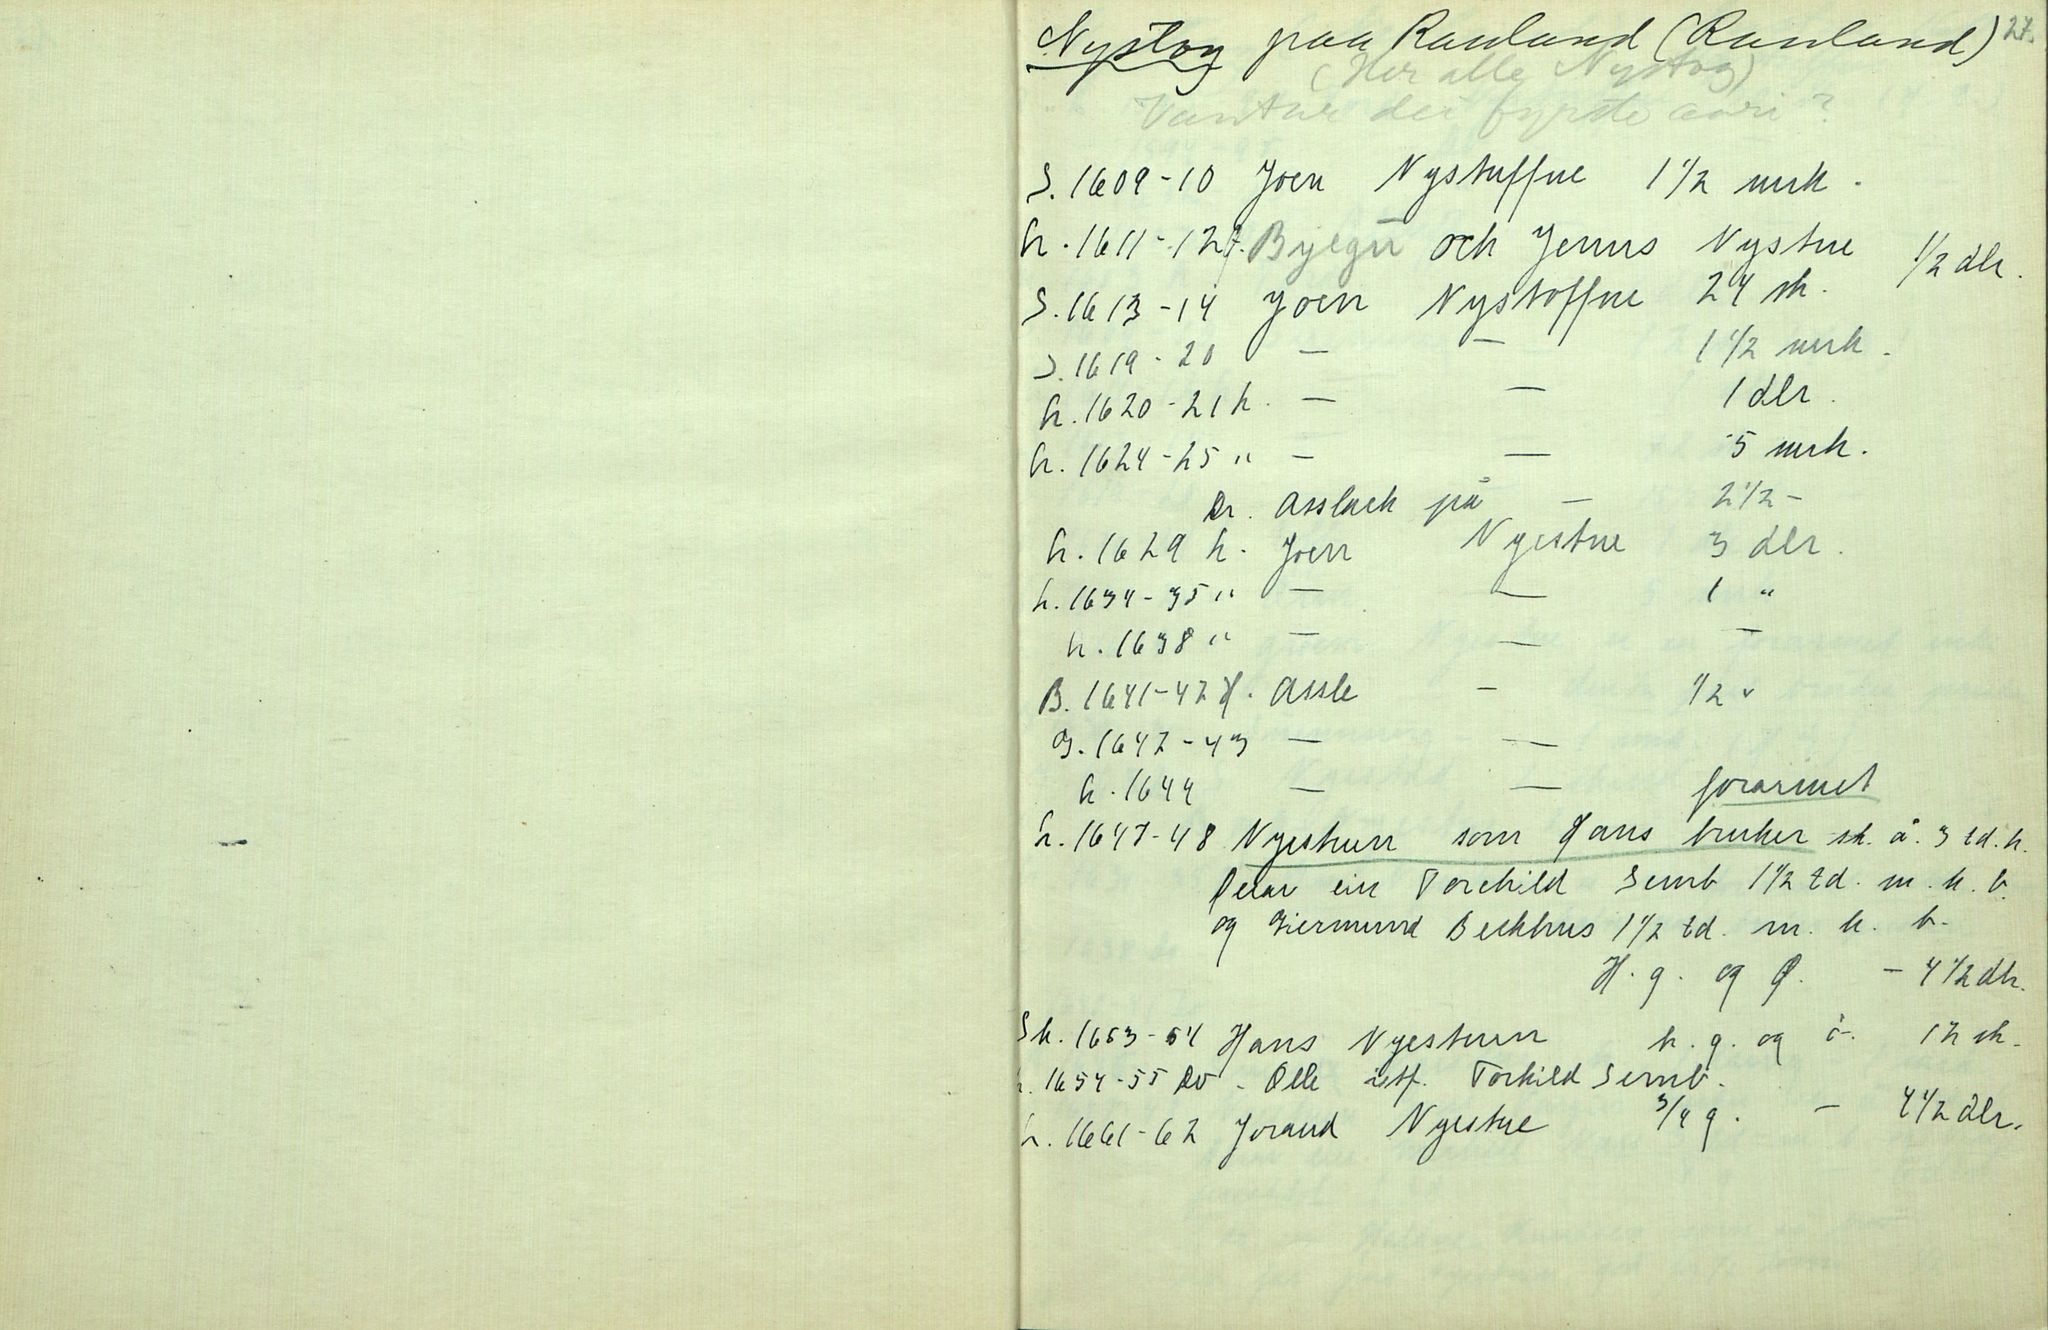 Nystog paa Rauland (Rauland) 27.
(Her alle Nystog)
Vantar dei fyrste aari?
S. 1609-10 Joen Nystuffue 1 1/2 mrk.
h. 1611-12 f. Byegn och Jenns Nystue 1/2 dlr.
S. 1613-14 Joen Nystoffue 24 sk.
S. 1619-20 — — 1 1/2 mrk.
h. 1620-21 h. — — 1 dlr.
h. 1624-25 " — — 5 mrk.
Dr. Asslack på — 2 1/2 -
h. 1629 h. Joen Nyestue 3 dlr.
h. 1634-35 " — — 1 "
h. 1638 " — — —
B. 1641-42 H. Assle — 1/2 "
G. 1642-43 — —
h. 1644 — — forarmet
h. 1647-48 Nyestuen som Hans bruker sk. å. 3 td. k.
Derav ein Torchild Semb 1 1/2 td. m. k. b.
og Giermund Beckhus 1 1/2 td. m. k. b.
H. g. og Ø. — 4 1/2 dlr.
Sk. 1653-54 Hans Nyestuen h. g. og ö. 12 sk.
h. 1654-55 Do - Olle istf. Torkild Semb.
h. 1661-62 Jorand Nyestue 3/4 g. — 4 1/2 dlr.